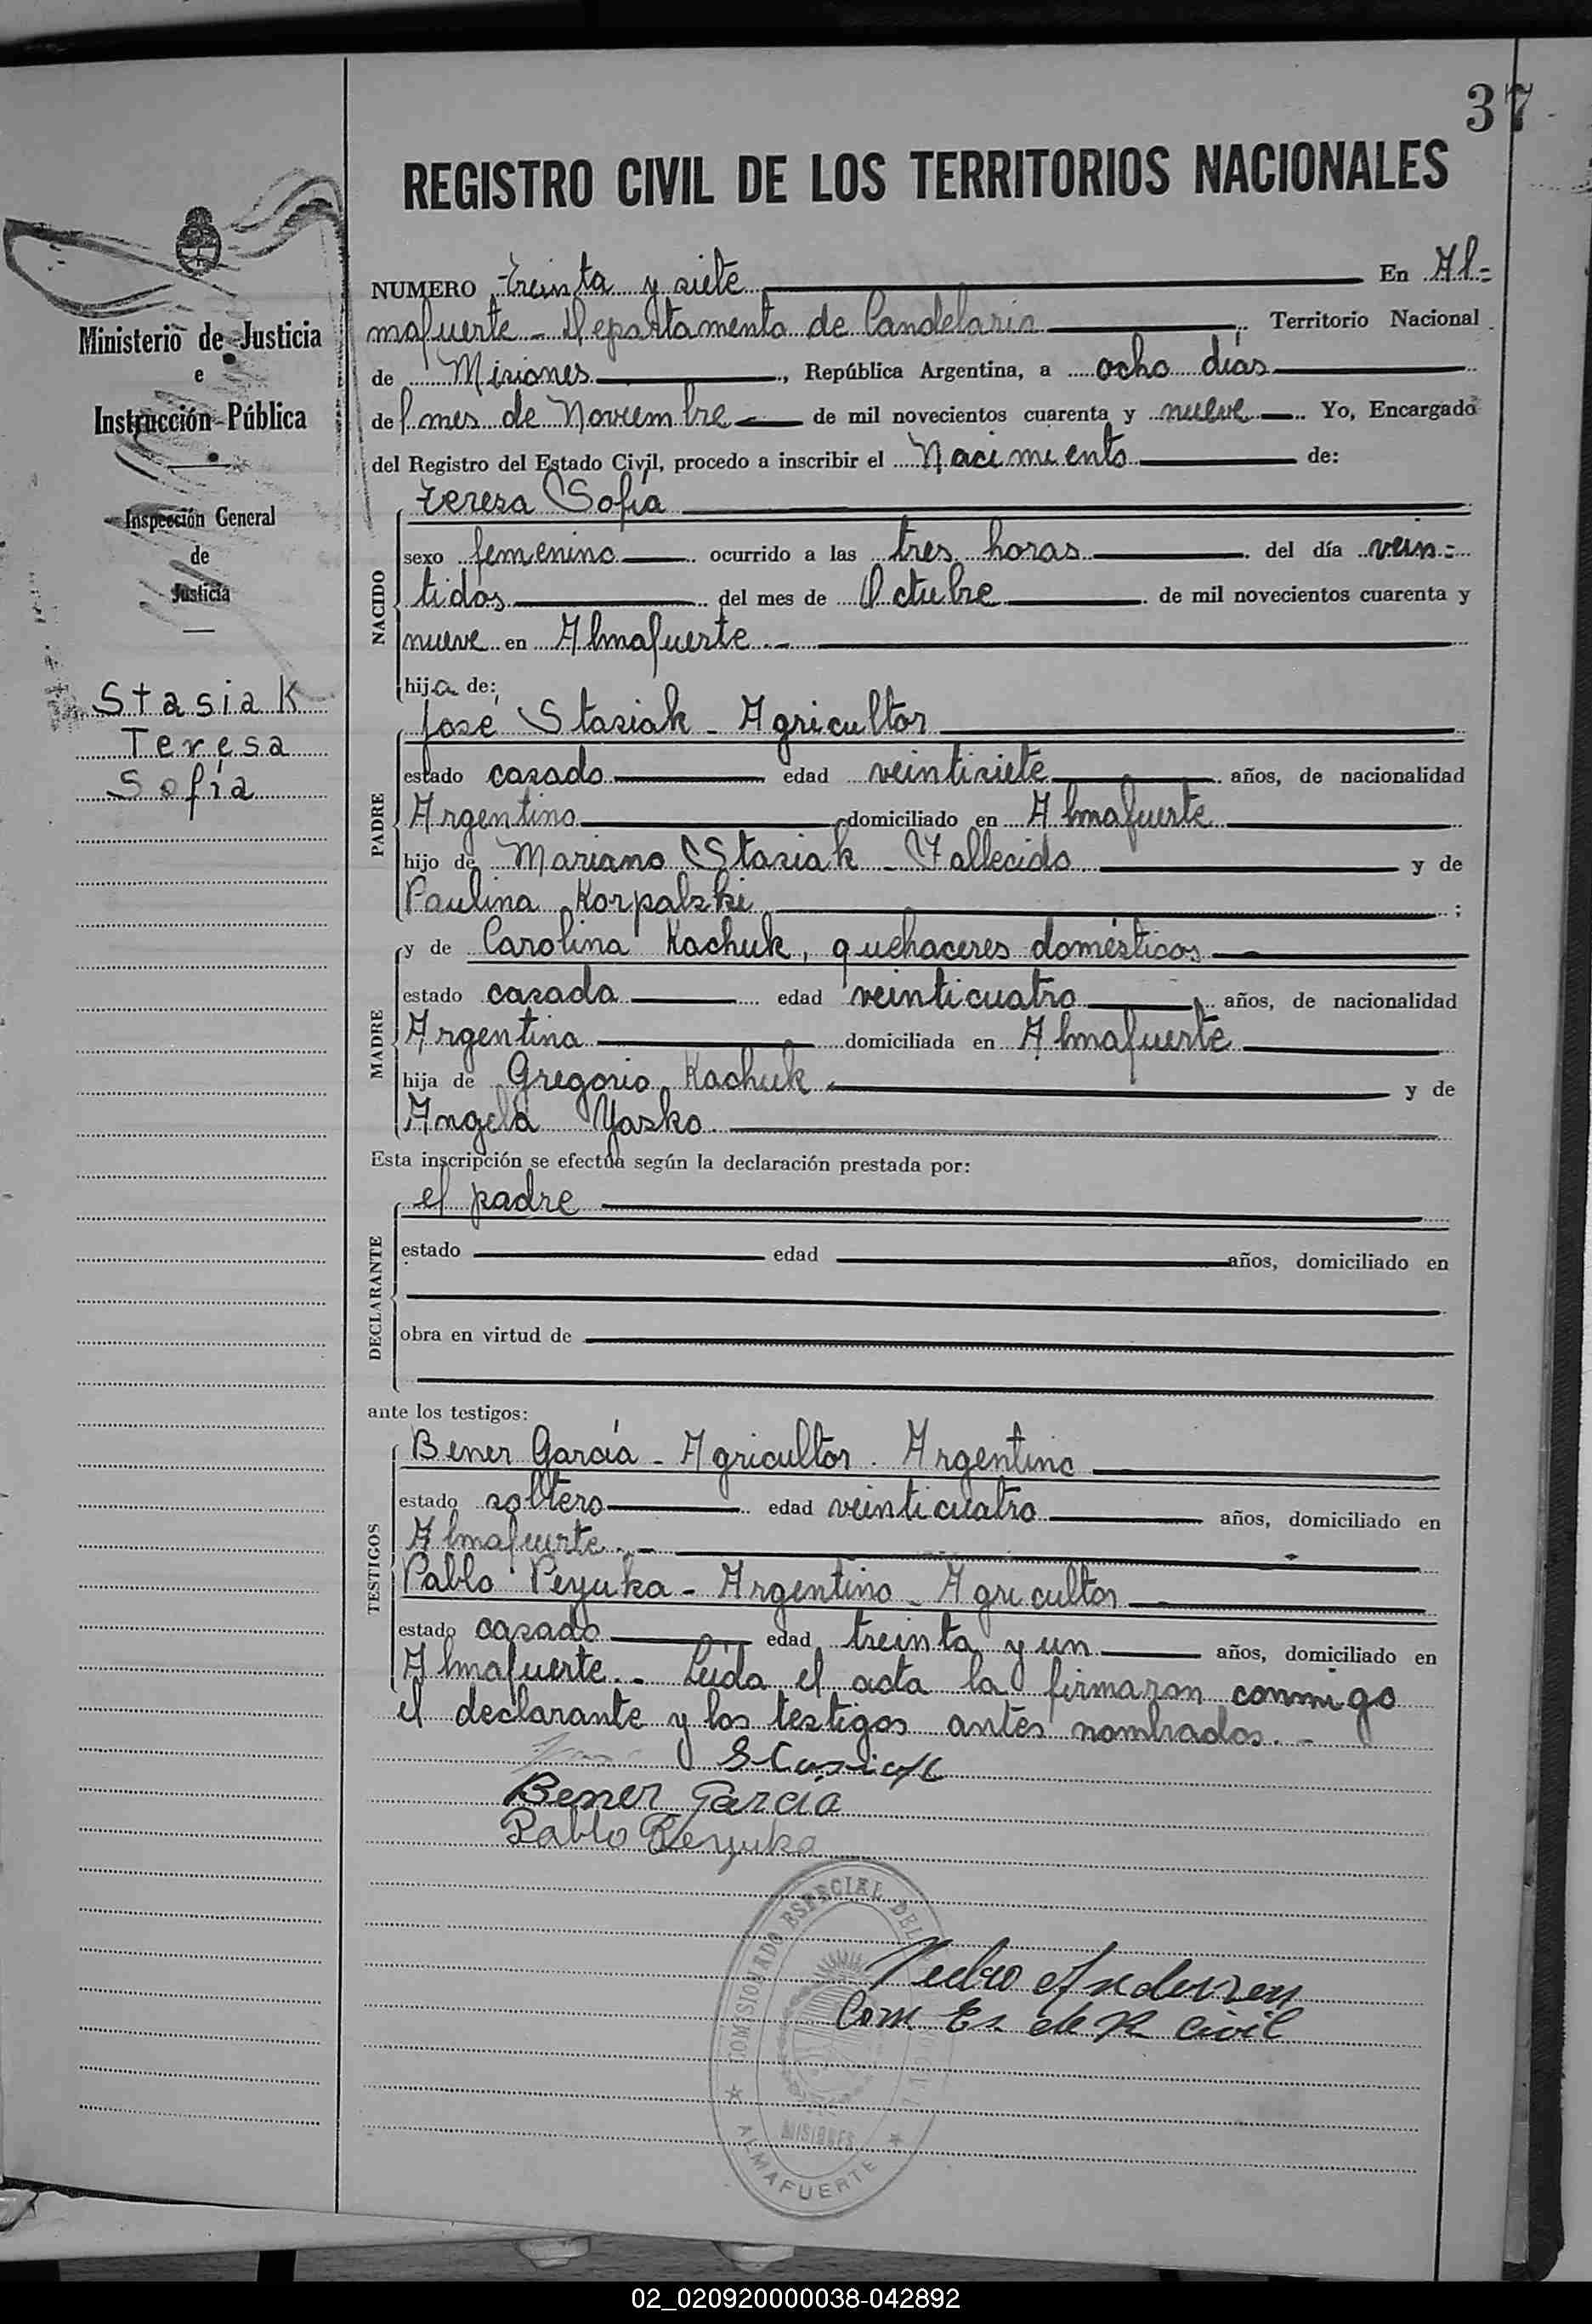 37
REGISTRO CIVIL DE LOS TERRITORIOS NACIONALES
Ministerio de Justicia
e
Instrucción Pública
Inspección General
de
Justicia
Stasiak
Teresa
Sofía
NUMERO treinta y siete En Al-
mafuerte - Departamento de Candelaria Territorio Nacional
de Misiones, República Argentina, a ocho días
del mes de Noviembre de mil novecientos cuarenta y nueve Yo, Encargado
del Registro del Estado Civil, procedo a inscribir el Nacimiento de:
NACIDO
Teresa Sofía
sexo femenino ocurrido a las tres horas del día vein-
tidos del mes de Octubre de mil novecientos cuarenta y
nueve en Almafuerte.-
hija de:
PADRE
José Stasiak - Agricultor
estado casado edad veintisiete años, de nacionalidad
Argentino domiciliado en Almafuerte
hijo de Mariano Stasiak - Fallecido y de
Paulina Korpalski ;
MADRE
y de Carolina Kachuk, quehaceres domésticos
estado casada edad veinticuatro años, de nacionalidad
Argentina domiciliada en Almafuerte
hija de Gregorio Kachuk y de
Angela Yasko.
Esta inscripción se efectúa según la declaración prestada por:
DECLARANTE
el padre
estado edad años, domiciliado en
obra en virtud de
ante los testigos:
TESTIGOS
Bener García - Agricultor. Argentino
estado soltero edad veinticuatro años, domiciliado en
Almafuerte.-
Pablo Peyuka - Argentino - Agricultor
estado casado edad treinta y un años, domiciliado en
Almafuerte.- Leída el acta la firmaron conmigo
el declarante y los testigos antes nombrados.-
Stasiak
Bener García
Pablo Peyuka
COMISIONADO ESPECIAL DEL
MISIONES
ALMAFUERTE
Pedro Andersen
Com Es. de R Civil
02_020920000038-042892